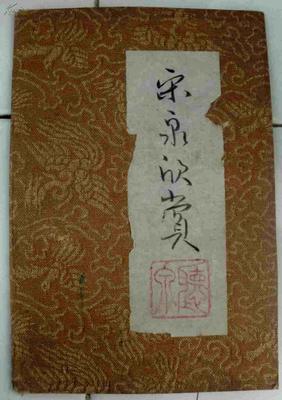 宋泉欣赏